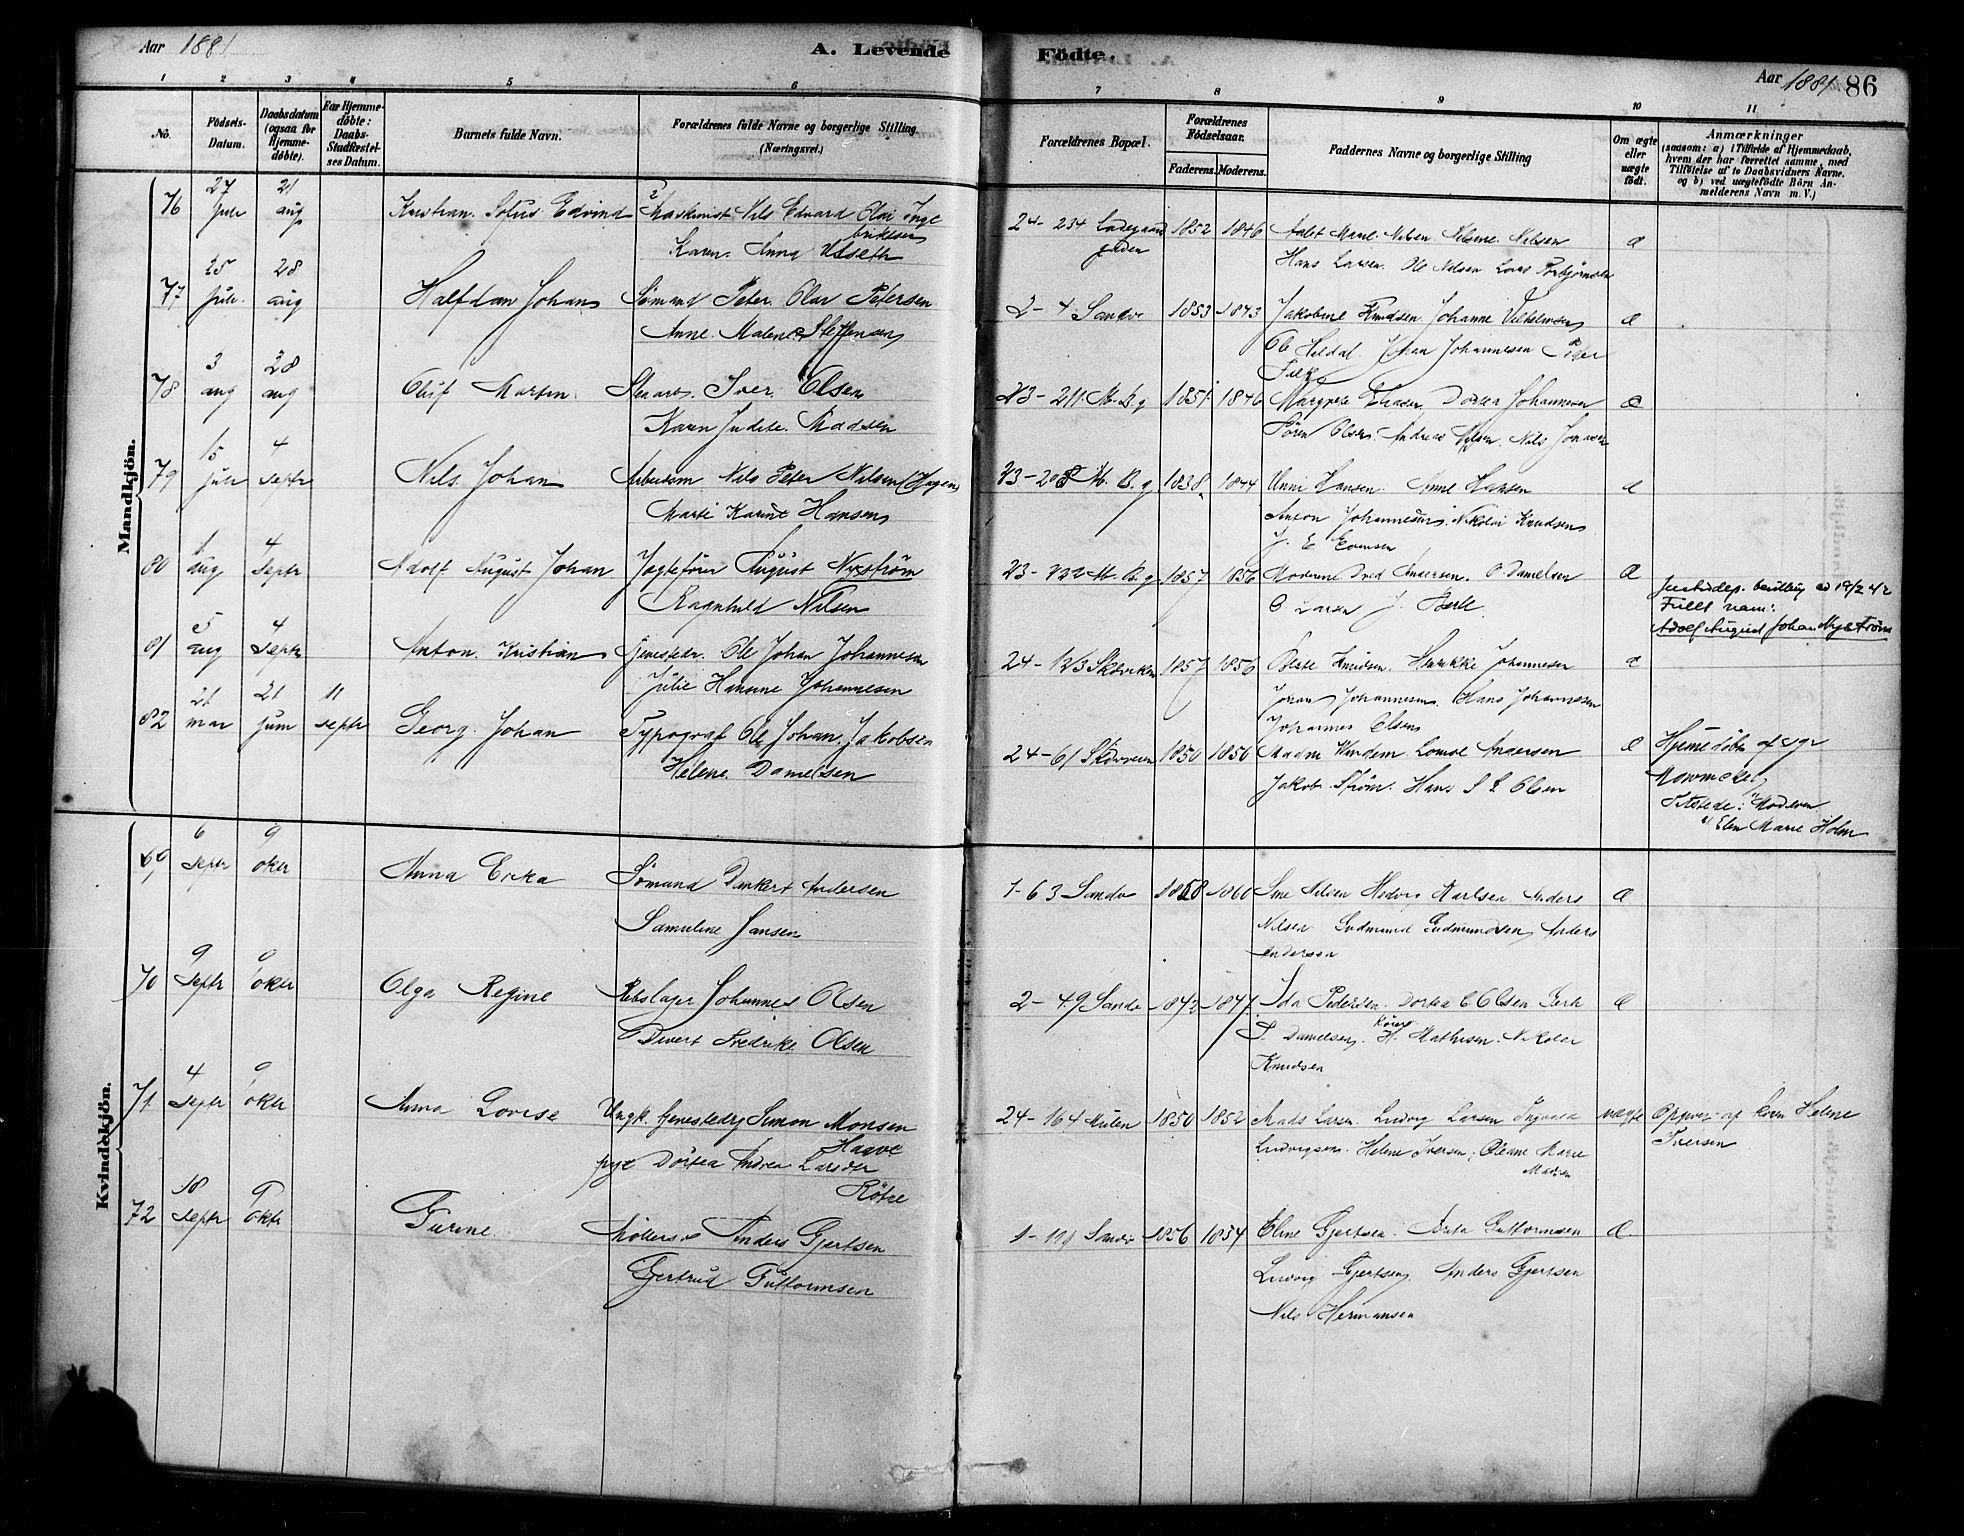 Aar 1881
A. Levende Födte.
Aar 1881 86
1 2 3 4 5 6 7 8 9 10 11
No.
Födsels-Datum.
Daabsdatum (ogsaa for Hjemme-döbte).
For Hjemme-döbte: Daabs-Stadfæstel-ses Datum.
Barnets fulde Navn.
Forældrenes fulde Navne og borgerlige Stilling (Næringsvei.)
Forældrenes Bopæl.
Forældrenes Födselsaar.
Faderens. Moderens.
Faddernes Navne og borgerlige Stilling
Om ægte eller uægte født.
Anmærkninger (saasom: a) i Tilfælde af Hjemmedaab, hvem der har forrettet samme, med Tilföielse af to Daabsvidners Navne. og b) ved uægtefödte Börn An-melderens Navn m. V.)
Mandkjön.
76 27 Juli 21 aug Kristian Sofus Edvind Maskinist Nils Edvard Olai Inge
briktsen
Karen Anna
24-234 Ladegaards
gaden 1852 1846 Nilsen Nilsine Nilsen
Hans Larsen. Ole Nilsen Lars Torbjørnsen
77 25 Juli 28 aug Halfdan Johan Sømand Peter Olai Petersen
Anne Malene Steffensen
2-4 Sandv 1853 1843 Jakobine Knudsen Johanne Vilhelmsen
Ole Heldal Johan Johannesen Peter
Falk
78 3 aug 28 aug Oluf Martin Iver Olsen
Karen Judite Madsen
23-211 M. B. g 1851 1846 Margrete Dortea Johannesen
Sören Olsen Andreas Nilsen. Nils Jonasen
79 15 Juli 4 Septr Nils Johan Arbeidsm Nils Peter Nilsen (Hagen)
Marti Karine Hansen
23-208 M. B. g 1838 1844 Unni Hansen Anne Hansen
Anton Johannesen Nikolai Knudsen
J. E Evensen
80 1 aug 4 Septr Adolf August Johan Jagtefører August Nystrøm
Ragnhild Nilsen
23-232 M. B. g 1857 1856 Moderen Dved Andersen. O Danielsen
O Larsen J.
Justisdep. bevilling av 19/2 42
Fullt navn:
Adolf August Johan Nystrøm
81 5 aug 4 Septr Anton Kristian Tjenestedr. Ole Johan Johannesen
Julie Hansine Johannesen
24-123 Skivviken 1857 1856 Knudsen Henrikke Johannesen
Johan Johannesen Hans Johannesen
Johannes Olsen
82 21 mar 21 juni 11 septr Georg Johan Typograf Ole Johan Jakobsen
Helene Danielsen
24-61 1850 1856 Madm Lovise Andersen
Jakob Strøm. Hans S L Olsen
Hjemmedøbt af
Tilstede: Moderen
Elen Marie Holm
Kvindekjön.
69 6 Septr 9 oktr Anna Erika Sømand Dankert Andersen
Samueline Jansen
1-63 Sandv 1860 Sine Nilsen Hedvig Karlsen Anders
Nilsen Gudmund Gudmundsen Anders
Andersen
70 9 Septr 9 oktr Olga Regine Rebslager Johannes Olsen
Divert Fredrike Olsen
2-49 Sandv 1842 1847 Ida Pedersen Dortea C Olsen
P. Danielsen H. Mathisen Nikolai
Knudsen
71 4 Septr 9 oktr Anna Lovise Ungk. tjenestedr Simon Monsen
Haave
pige Dortea Andrea Larsdr
24-164 Mulen 1850 1852 Mads Larsen Ludvig Larsen Ingvald
Ludvigsen. Helene Iversen, Oleane Marie
Madsen
uægte Opgivet af kone Helene
Iversen
72 18 Septr 9 oktr Turine Møllersv Anders Gjertsen
Gjertrud Guttormsen
1-101 Sandv 1856 1854 Eline Gjertsen Brita Guttormsen
Ludvig Gjertsen Anders Gjertsen
Nils Hermansen